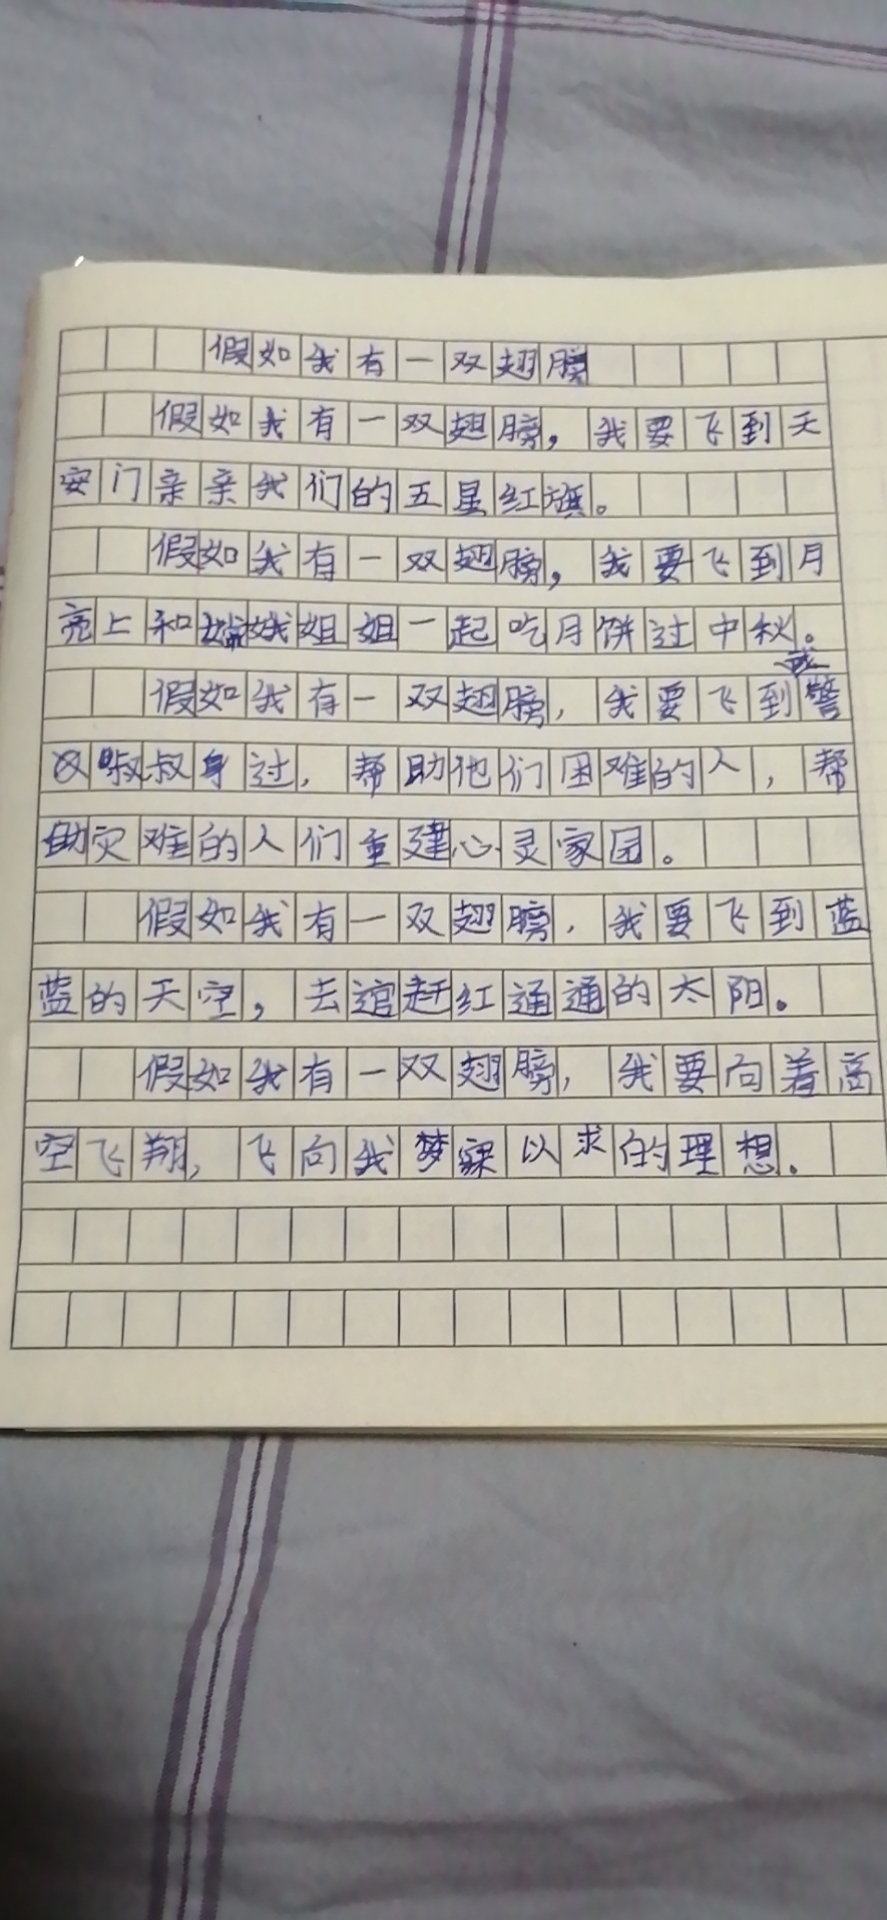 假如我有一双翅膀
假如我有一双翅膀，我要飞到天
安门亲亲我们的五星红旗。
假如我有一双翅膀，我要飞到月
亮上和嫦娥姐姐一起吃月饼过中秋。
假如我有一双翅膀，我要飞到警
叔叔身过，帮助他们困难的人，帮
助灾难的人们重建心灵家园。
假如我有一双翅膀，我要飞到蓝
蓝的天空，去追赶红通通的太阳。
假如我有一双翅膀，我要向着高
空飞翔，飞向我梦寐以求的理想。